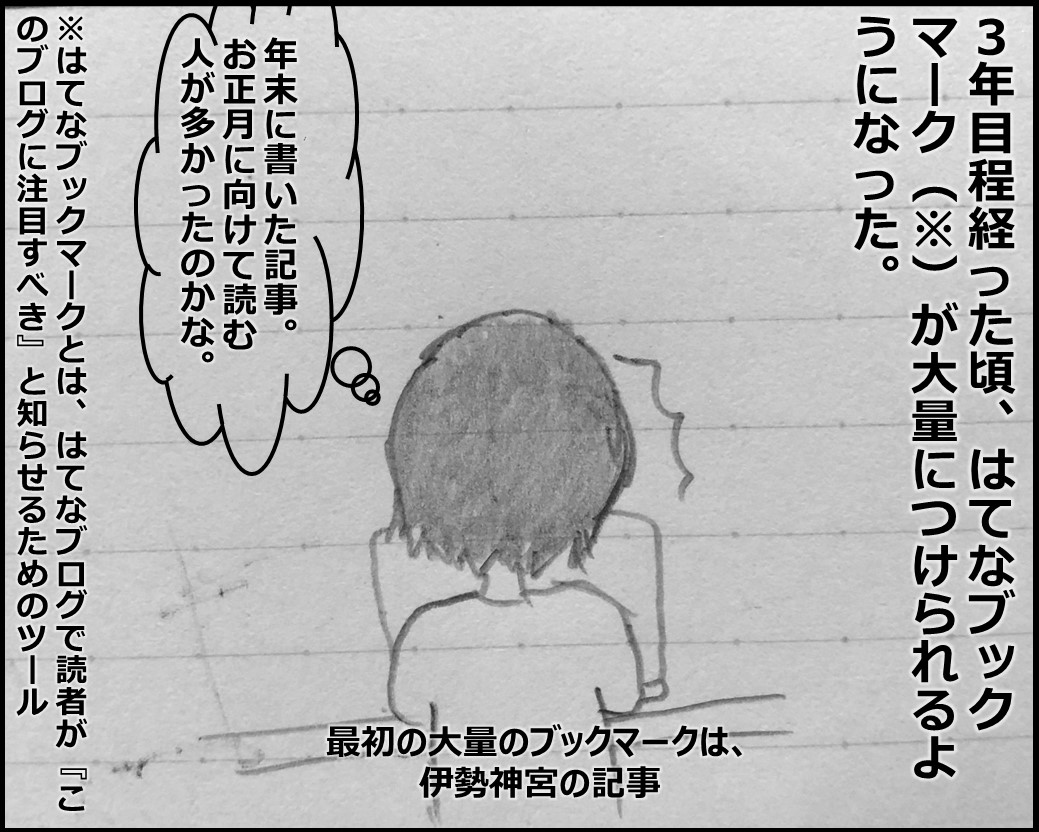 ３年目程経った頃、はてなブック
マーク（※）が大量につけられるよ
うになった。
年末に書いた記事。
お正月に向けて読む
人が多かったのかな。
最初の大量のブックマークは、
伊勢神宮の記事
※はてなブックマークとは、はてなブログで読者が『こ
のブログに注目すべき』と知らせるためのツール